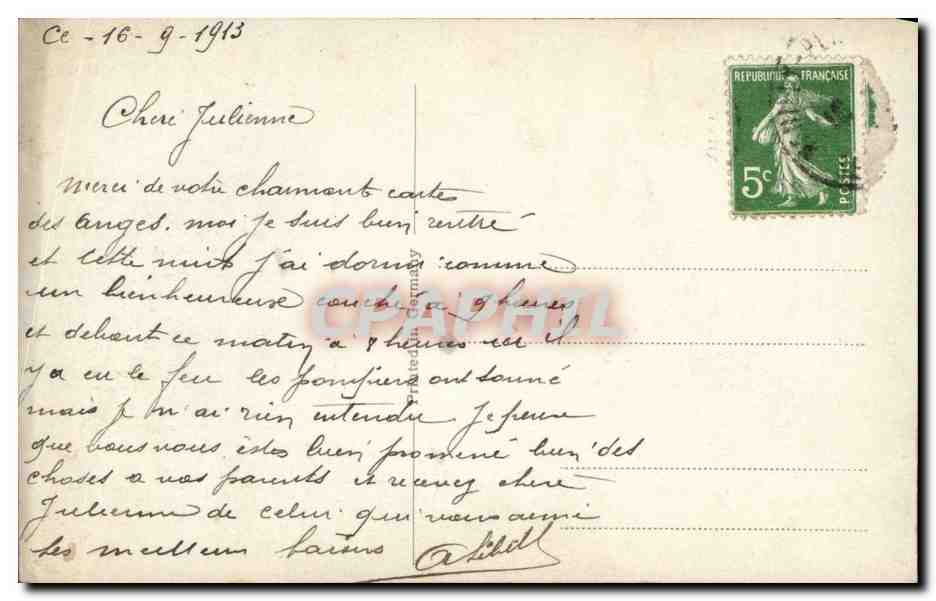 Ce - 16 - 9 - 1913
REPUBLIQUE FRANÇAISE
5c
POSTES
Cheri Julienne
Merci de votre charmont carte
des anges. moi je suis bien rentré
et cette nuit j'ai dormi comme
un bienheureuse couché a 9 heures
et debout ce matin a 8 heures il
y a eu le feu les pompiers ont sonné
mais je n'ai rien entendu Je pense
que vous vous êtes bien promené bien des
choses a vos parents et recevez cheri
Julienne de celui qui vous aemi
les meilleur baisers
Printed in Germany
CPAPHIL